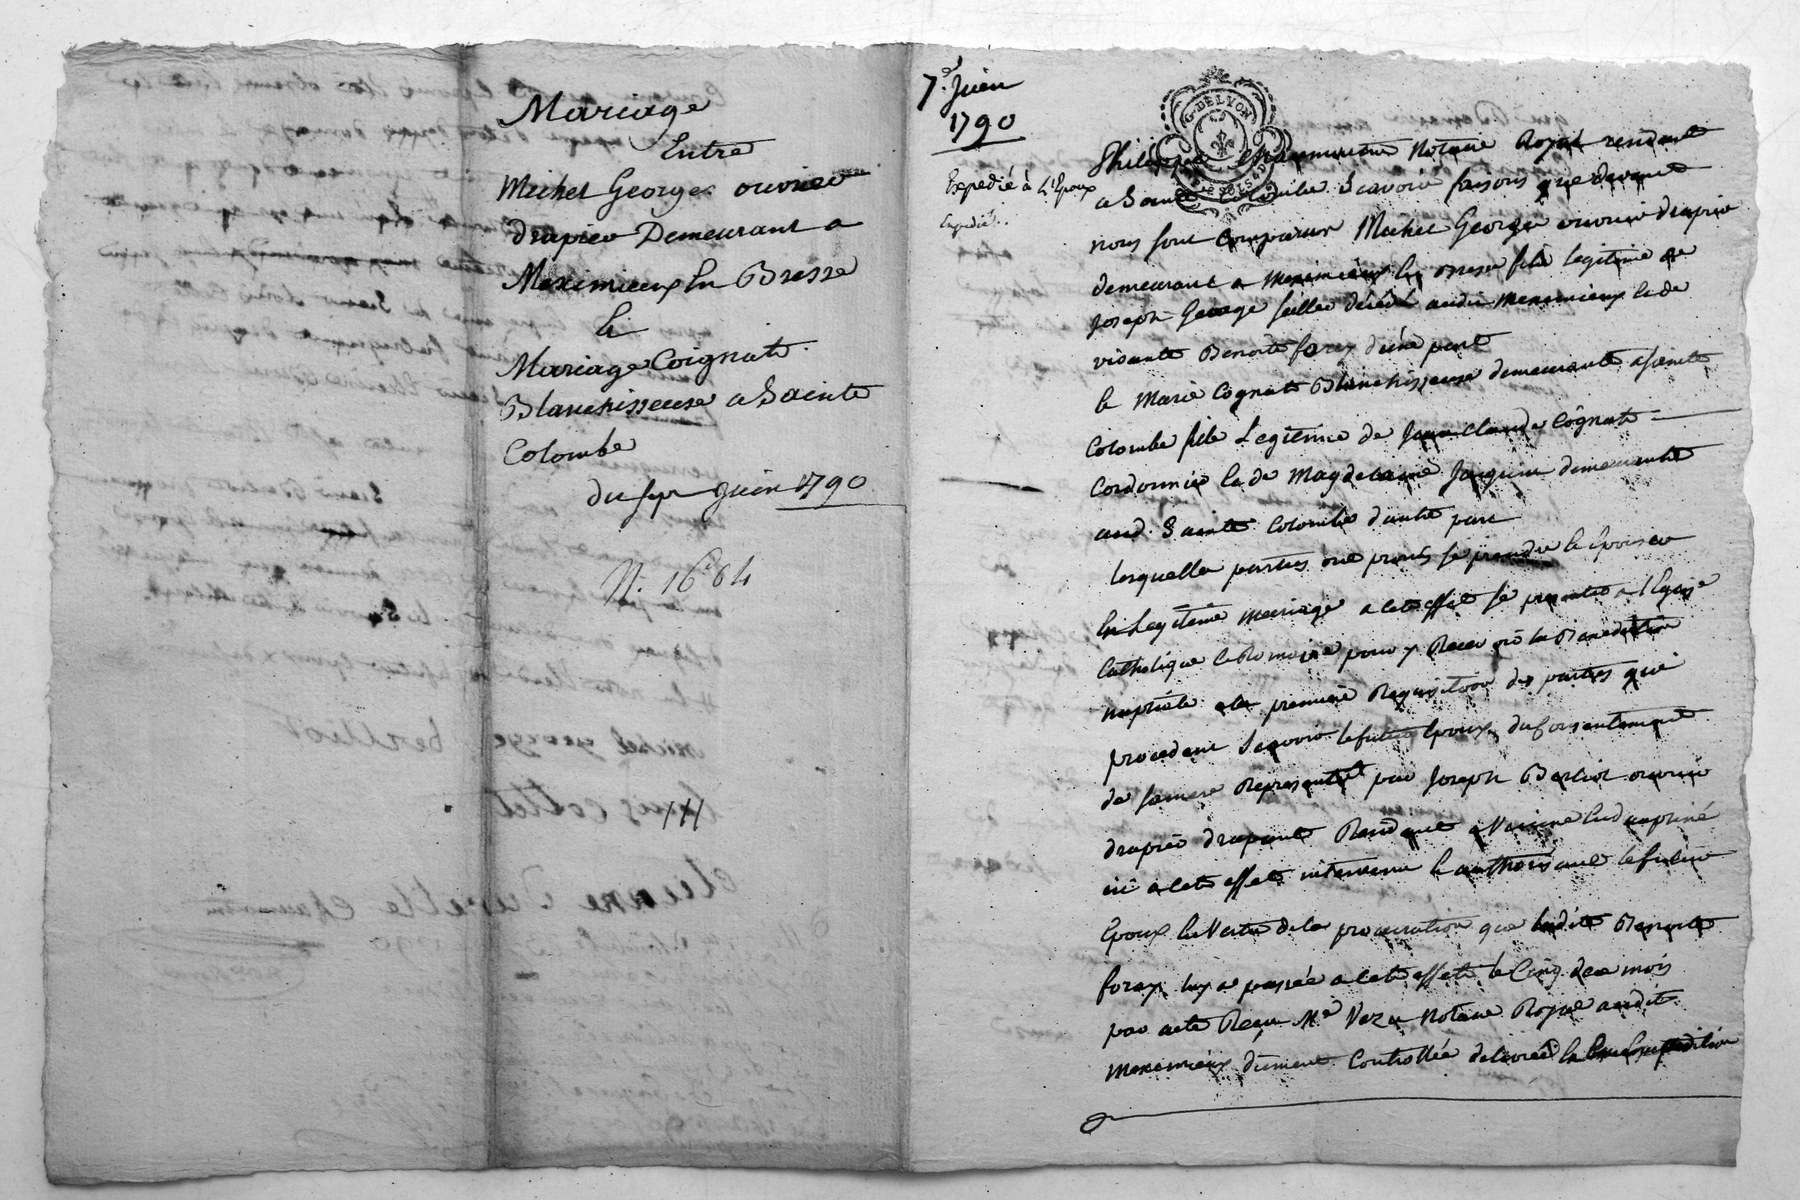 Mariage
Entre
Michel George ouvrier
drapier Demeurant a
Meximieux En Bresse
Et
Mariage Coignat
Blanchisseuse a Sainte
Colombe
du sept Juin 1790
N. 16
7e Juin
1790
Expedié à L'Epoux
Expedié
G. DE LYON
Philippe Notaire Royal residant
a Sainte Colombe Scavoir faisons que devant
nous sont comparus Michel George ouvrier drapier
demeurant a Meximieux En Bresse fils legitime de
Joseph George sellier décédé audit Meximieux Et de
vivante Benoite forey d'une part
Et Marie Cognat Blanchisseuse demeurante a Sainte
Colombe fille Legitime de Jean Claude Cognat
Cordonnier Et de Magdelaine Jacquin demeurants
aud. Sainte Colombe d'autre part
lesquelles parties ont promis se prendre Et Epouser
En Legitime Mariage a cet effet se presenter a l'Eglise
Catholique Et Romaine pour y Recevoir la Benediction
nuptiale a la premiere Requisition des parties qui
procedent Scavoir le futur Epoux du Consentement
de sa mere Representée par Joseph Berliot ouvrier
drapier drapant Residant a Vienne
ici a cet effet intervenu Et authorisant le futur
Epoux En Vertu de la procuration que ladite Benoite
forey luy a passée a cet effet le Cinq de ce mois
par acte Reçu Me Vezu Notaire Royal audit
Meximieux duement Controllée delivrée En Expedition
michel george berliot
louis collet
etienne Durette